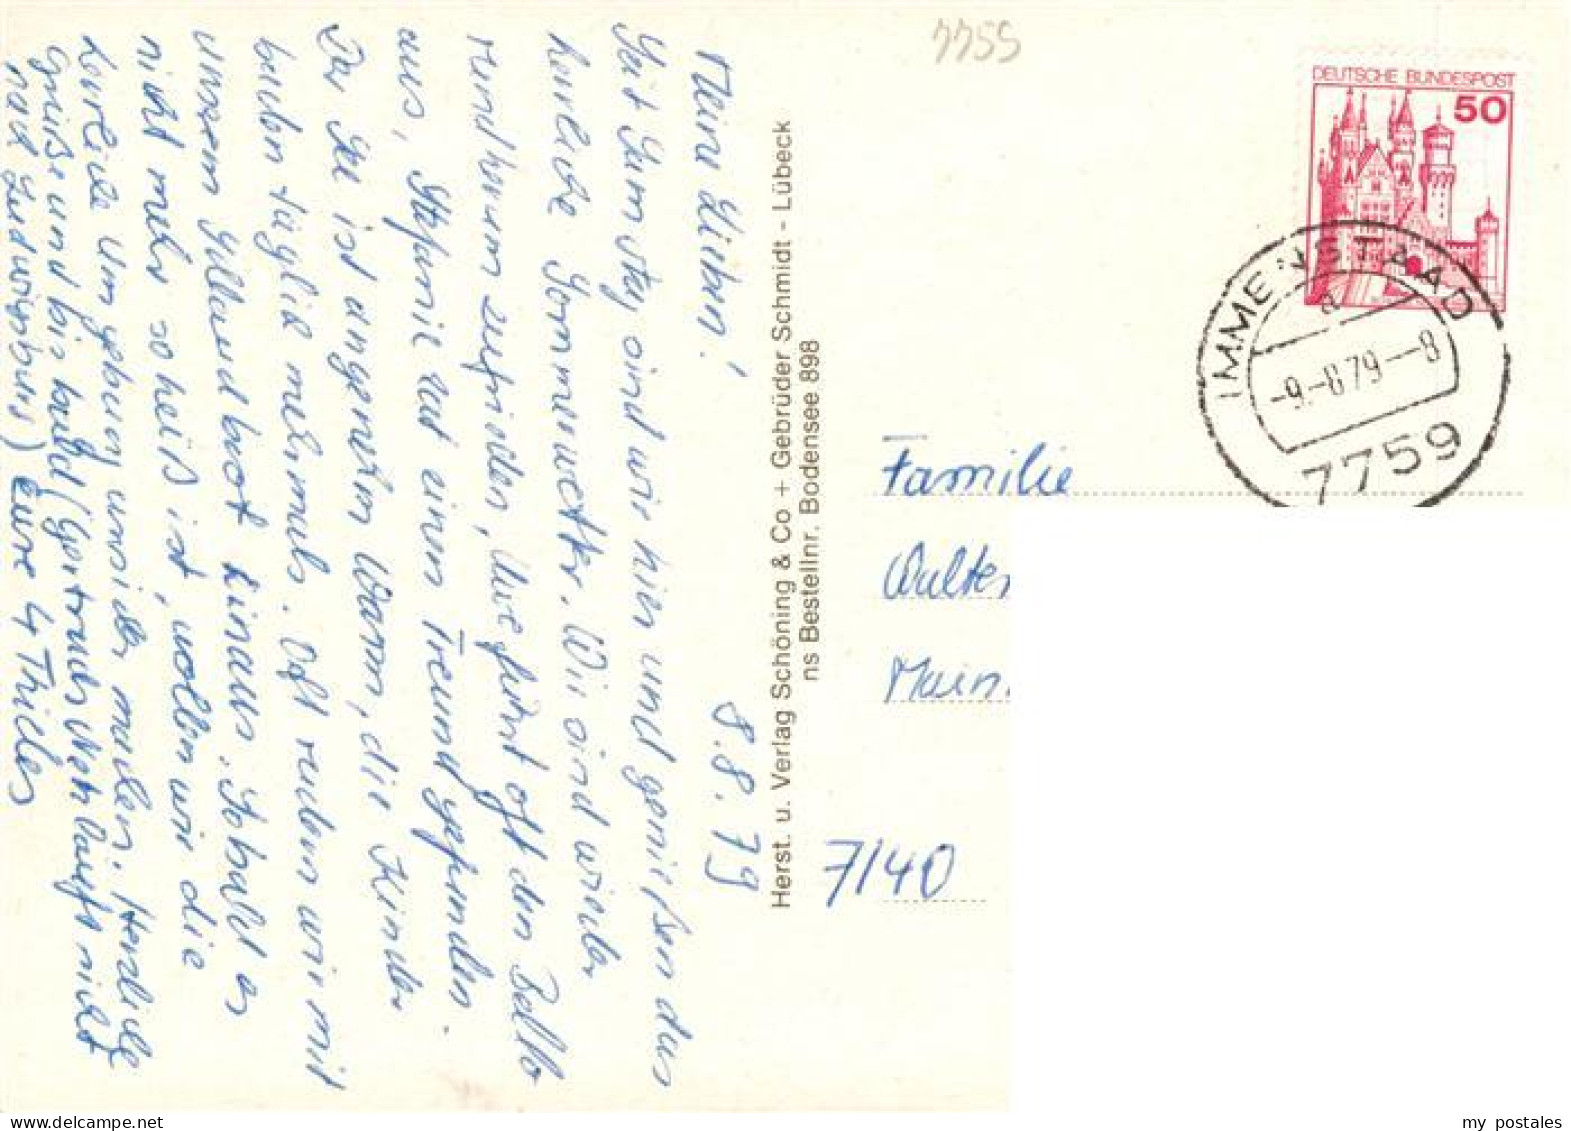 7759
DEUTSCHE BUNDESPOST
50
IMMENSTAAD
a
-9.-8.79--8
7759
Meine Lieben!
8.8.79
Seit Samstag sind wir hier und genießen das
herrliche Sommerwetter. Wir sind wieder
rundherum zufrieden, Uwe führt oft den Bello
aus, Stefanie hat einen Freund gefunden.
Der See ist angenehm warm, die Kinder
baden täglich mehrmals. Oft rudern wir mit
unserem Schlauchboot hinaus. Sobald es
nicht mehr so heiß ist, wollen wir die
Umgebung unsicher machen. Herzliche
Grüße und bis bald (Gertruds läuft nicht
nach Ludwigsburg) Eure 4 Thieles
Herst. u. Verlag Schöning & Co + Gebrüder Schmidt - Lübeck
ns Bestellnr. Bodensee 898
Familie
Walter
7140
my postales